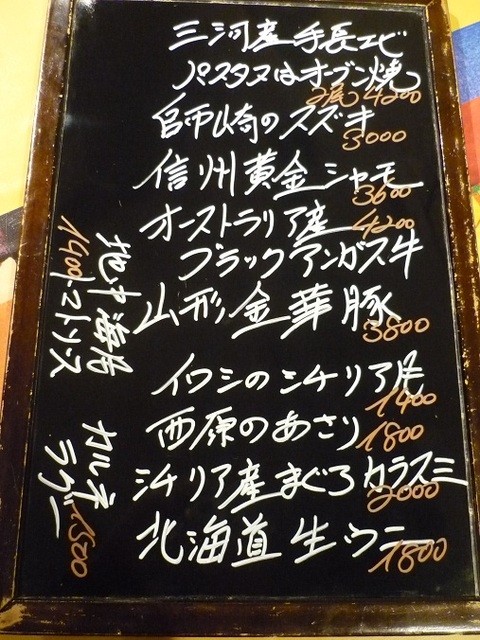 三河産手長エビ
パスタ又はオブン焼
2尾 4200
師崎のスズキ
3000
信州黄金シャモ
3600
オーストラリア産
4200
ブラックアンガス牛
山形金華豚
3800
イワシのシチリア風
1400
西原のあさり
1800
シチリア産まぐろカラスミ
2000
北海道生ウニ
1800
地中海風
トリス
1400
カルネ
ラグー
1500